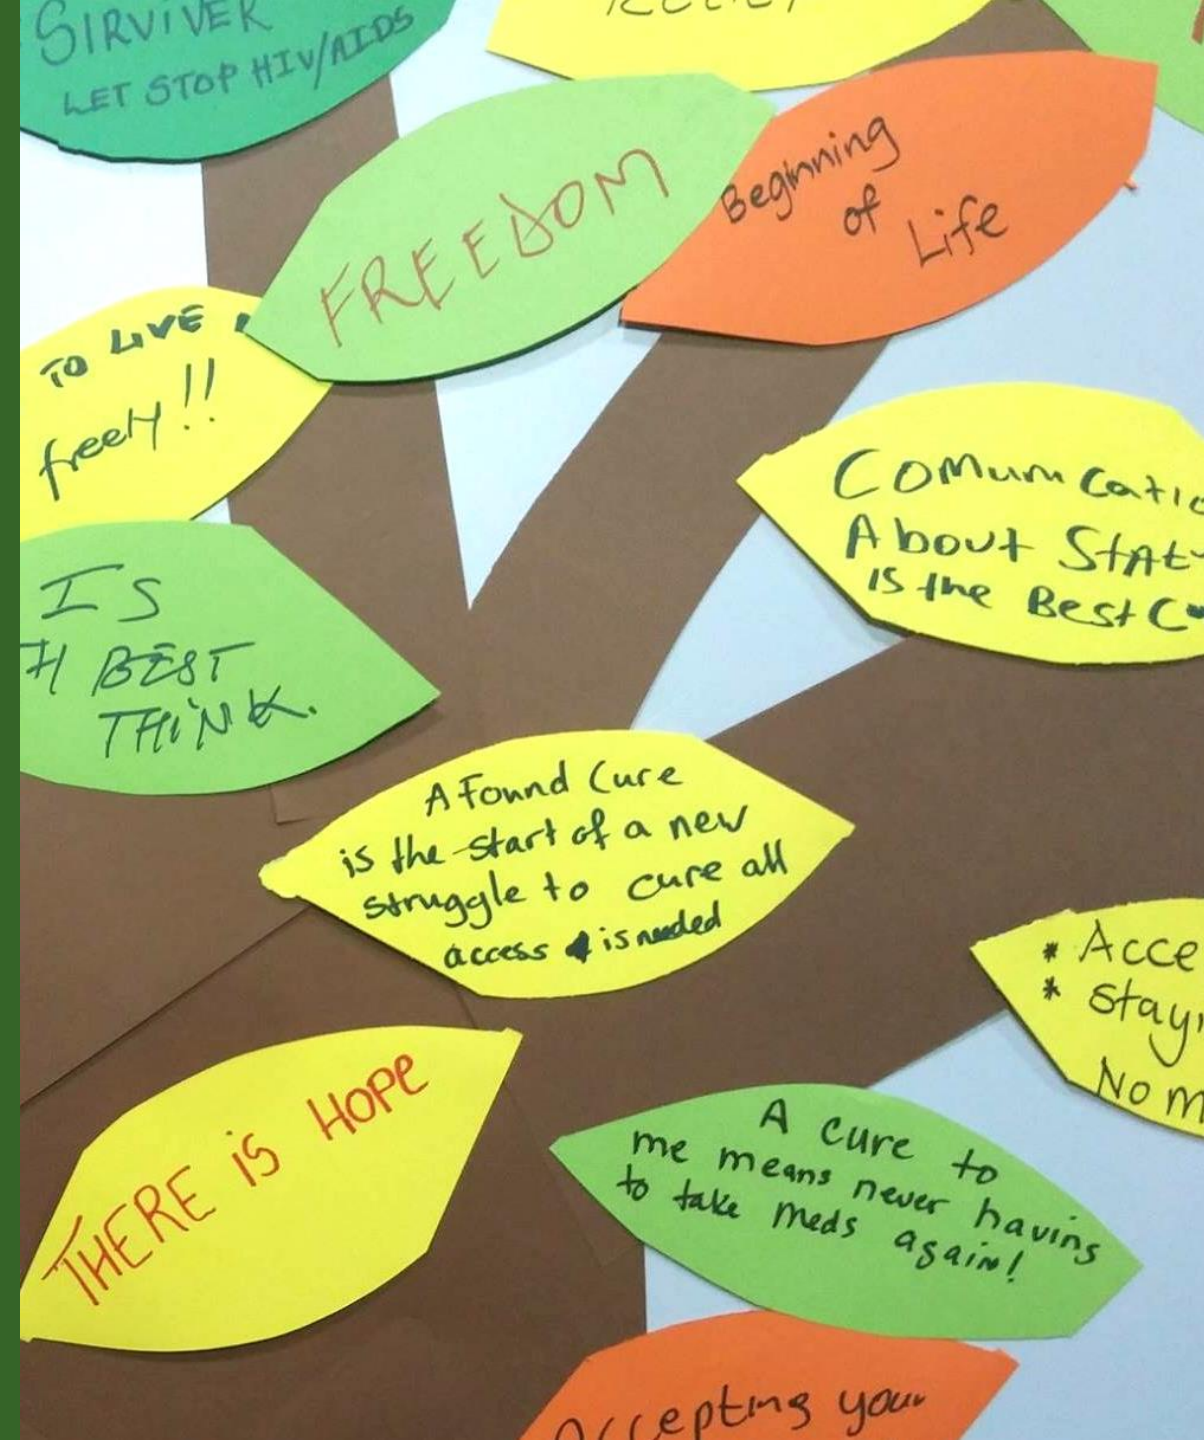 SIRVIVER
LET STOP HIV/AIDS
FREEDOM
Beginning
of
Life
TO LIVE
freely!!
IS
BEST
THINK.
Comunicatio
About Stat
is the Best
A Found Cure
is the start of a new
struggle to cure all
access is needed
* Acce
* stayi
No m
THERE iS HOPE
A cure to
me means never having
to take meds again!
Accepting your